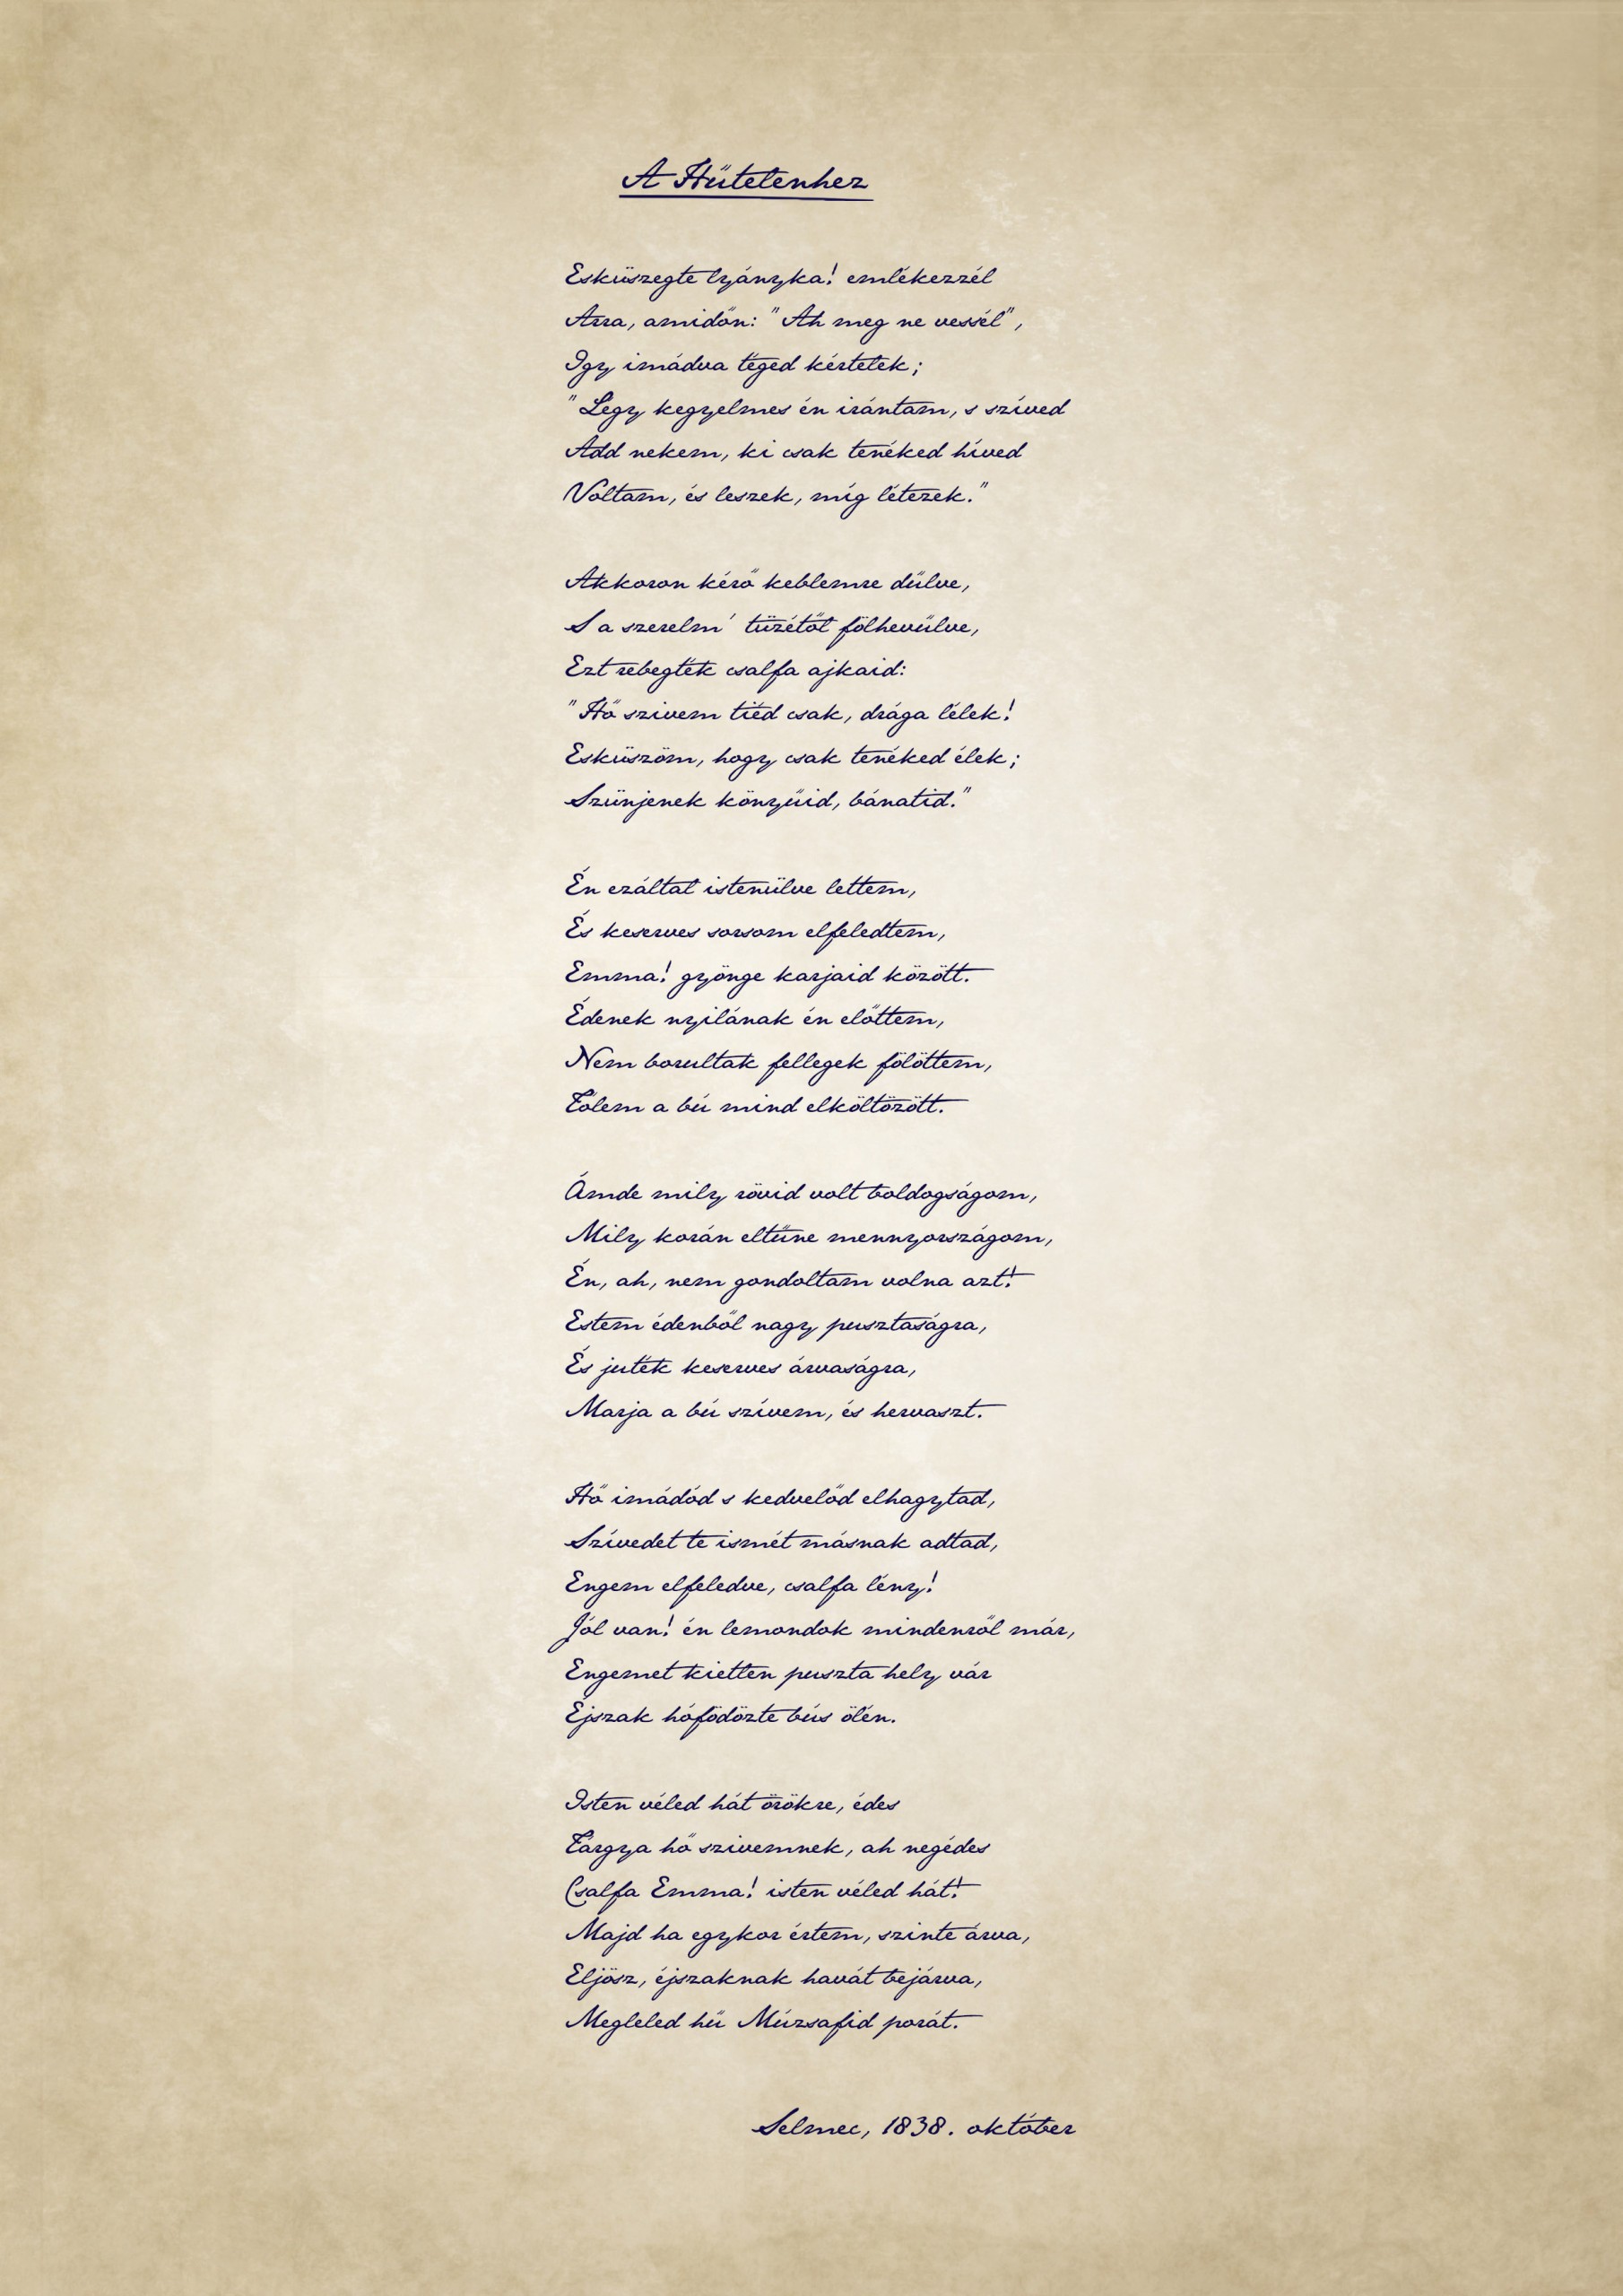 A Hűtelenhez
Esküszegte lyányka! emlékezzél
Arra, amidőn: "Ah meg ne vessél",
Igy imádva téged kértelek;
"Légy kegyelmes én irántam, s szíved
Add nekem, ki csak tenéked híved
Voltam, és leszek, míg létezek."
Akkoron kérő keblemre dűlve,
S a szerelm' tüzétől fölhevűlve,
Ezt rebegték csalfa ajkaid:
"Hő szivem tiéd csak, drága lélek!
Esküszöm, hogy csak tenéked élek;
Szünjenek könyűid, bánatid."
Én ezáltal istenülve lettem,
És keserves sorsom elfeledtem,
Emma! gyönge karjaid között.
Édenek nyilának én előttem,
Nem borultak fellegek fölöttem,
Tőlem a bú mind elköltözött.
Ámde mily rövid volt boldogságom,
Mily korán eltűne mennyországom,
Én, ah, nem gondoltam volna azt!
Estem édenből nagy pusztaságra,
És juték keserves árvaságra,
Marja a bú szívem, és hervaszt.
Hő imádód s kedvelőd elhagytad,
Szívedet te ismét másnak adtad,
Engem elfeledve, csalfa lény!
Jól van! én lemondok mindenről már,
Engemet kietlen puszta hely vár
Éjszak hófödözte bús ölén.
Isten véled hát örökre, édes
Tárgya hő szivemnek, ah negédes
Csalfa Emma! isten véled hát!
Majd ha egykor értem, szinte árva,
Eljösz, éjszaknak havát bejárva,
Megleled hű Múzsafid porát.
Selmec, 1838. október